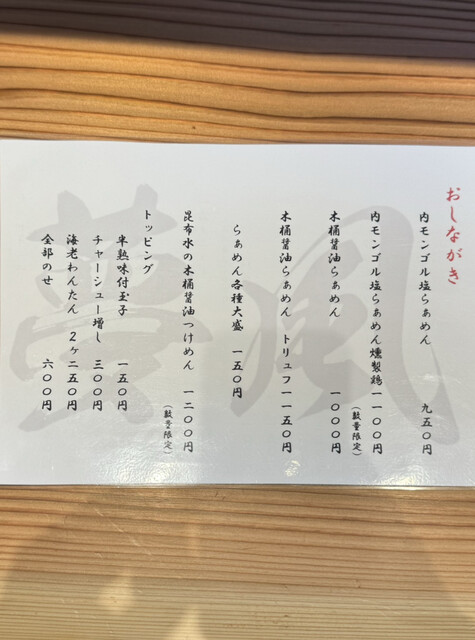 おしながき
内モンゴル塩らぁめん 九五〇円
内モンゴル塩らぁめん燻製鶏 一一〇〇円
(数量限定)
木桶醤油らぁめん 一〇〇〇円
木桶醤油らぁめん トリュフ 一一五〇円
らぁめん各種大盛 一五〇円
昆布水の木桶醤油つけめん 一二〇〇円
(数量限定)
トッピング
半熟味付玉子 一五〇円
チャーシュー増し 三〇〇円
海老わんたん 2ヶ 二五〇円
全部のせ 六〇〇円
夢風